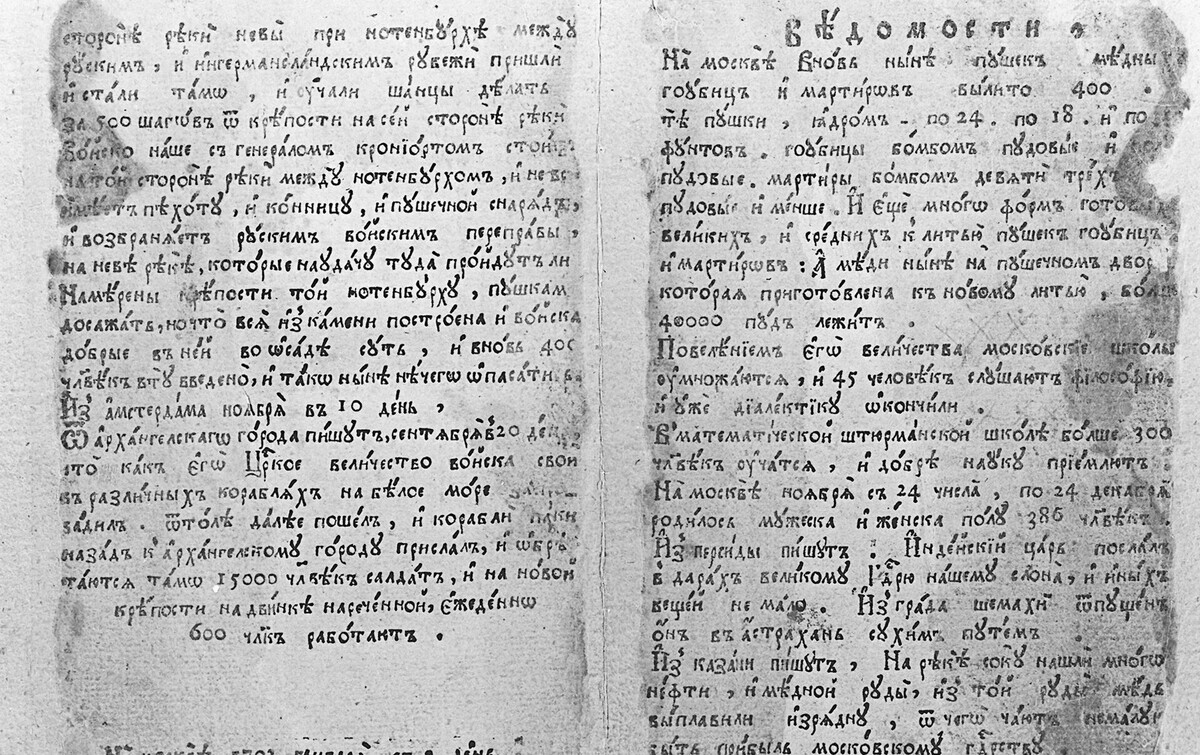 сторонѣ рѣкѝ невы̀ при нотенбу́рхѣ междꙋ
рꙋ́скимъ, и҆ и҆нгерманла́ндскимъ рꙋбежѝ пришлѝ
и҆ ста́ли та́мѡ, и҆ ꙋ҆ча́ли ша́нцы дѣ́лать
за 500 шаго́въ ѿ крѣ́пости на се́й сторонѣ̀ рѣкѝ
во́йско на́ше съ генера́ломъ кронїо́ртомъ стои́тъ
на то́й сторонѣ̀ рѣкѝ междꙋ̀ нотенбꙋ́рхомъ, и҆
и҆мѣ́етъ пѣхо́тꙋ, и҆ ко́нницꙋ, и҆ пꙋ́шечной снаря́дъ,
и҆ возбраня́етъ рꙋ́скимъ во́йскимъ перепра́вы,
на невѣ̀ рѣкѣ̀, кото́рые наꙋда́чꙋ тꙋда̀ про́йдꙋтъ ли
Намѣ́рены крѣ́пости то́й нотенбꙋ́рхꙋ, пꙋ́шкам
досажа́ть, но что̀ вся̀ и҆з̾ ка́мени постро́ена и҆ во́йска
до́брые въ не́й во ѡ҆са́дѣ сꙋ́ть, и҆ вно́вь 400
чл҃вѣкъ в тꙋ̀ введено̀, и҆ та́кѡ ны́нѣ не́чегѡ ѡ҆паса́ти
И҆з̾ а҆мстерда́ма ноября̀ въ 10 де́нь,
Ѿ а҆рха́нгелскагѡ го́рода пи́шꙋтъ, сентября̀ в̾ 20 де́нь,
что̀ ка́къ є҆гѡ̀ Цр҃кое вели́чество во́йска свои̑
въ разли́чныхъ корабля́хъ на бѣ́лое мо́ре
зади́лъ. ѿто́лѣ да́лѣе поше́лъ, и҆ кораблѝ па́ки
наза́д к̾ а҆рха́нгелскомꙋ го́родꙋ присла́лъ, и҆ ѡ҆брѣ
та́ются та́мѡ 15000 чл҃вѣкъ салда́тъ, и҆ на но́вой
крѣ́пости на дви́нкѣ нарече́нной, є҆жеде́ннѡ
600 чл҃къ рабо́таютъ.
вѣ́домости,
На москвѣ̀ вно́вь ны́нѣ пꙋ́шекъ мѣ́дны
гоꙋ́бицъ и҆ мартирѡ́въ вы́лито 400.
тѣ̀ пꙋ́шки, ꙗ҆дро́мъ - по 24. по 18. и҆ по
фꙋ́нтовъ. гоꙋ́бицы бо́мбомъ пꙋдо́вые и҆
пꙋдо́вые. марти́ры бо́мбомъ девятѝ тре́хъ
пꙋдо́вые и҆ ме́нше. И҆ є҆щѐ мно́гѡ фо́рмъ гото́выхъ
вели́кихъ, и҆ сре́днихъ к̾ литью̀ пꙋ́шекъ гоꙋ́бицъ
и҆ марти́рѡвъ: А҆ мѣ́ди ны́нѣ на пꙋ́шечномъ двор
кото́рая пригото́влена къ но́вомꙋ литью̀, бо́лше
40000 пꙋ́дъ лежи́тъ.
Повелѣ́нїемъ є҆гѡ̀ вели́чества моско́вскїе шко́лы
ꙋ҆множа́ются, и҆ 45 человѣ́къ слꙋ́шаютъ філосо́фїю,
и҆ ꙋ҆жѐ дїале́ктїкꙋ ѡ҆ко́нчили.
В̾ математі́ческой штюрма́нской шко́лѣ бо́лше 300
чл҃вѣкъ ꙋ҆ча́тся, и҆ до́брѣ наꙋ́кꙋ прїе́млютъ.
На москвѣ̀ ноября̀ съ 24 числа̀, по 24 декабря̀
роди́лось мꙋ́жеска и҆ же́нска по́лꙋ 386 чл҃вѣкъ.
И҆з̾ перси́ды пи́шꙋтъ. И҆ндѣ́йскїй ца́рь посла́лъ
в̾ дара́хъ вели́комꙋ Гдⷭ҇рю на́шемꙋ слона̀, и҆ и҆ны́хъ
веще́й не ма́ло. И҆з̾ гра́да шемахѝ ѿпꙋ́щенъ
ѻ҆́нъ въ а҆́страхань сꙋхи́мъ пꙋте́мъ
И҆з̾ каза́ни пи́шꙋтъ, На рѣкѣ̀ сокꙋ̀ нашлѝ мно́гѡ
не́фти, и҆ мѣ́дной рꙋды̀, и҆з̾ то́й рꙋды̀ мѣ́дь
вы́плавили и҆зря́днꙋ, ѿ чегѡ̀ ча́ютъ нема́лꙋю
бы́ть при́быль моско́вскомꙋ гдⷭ҇рствꙋ